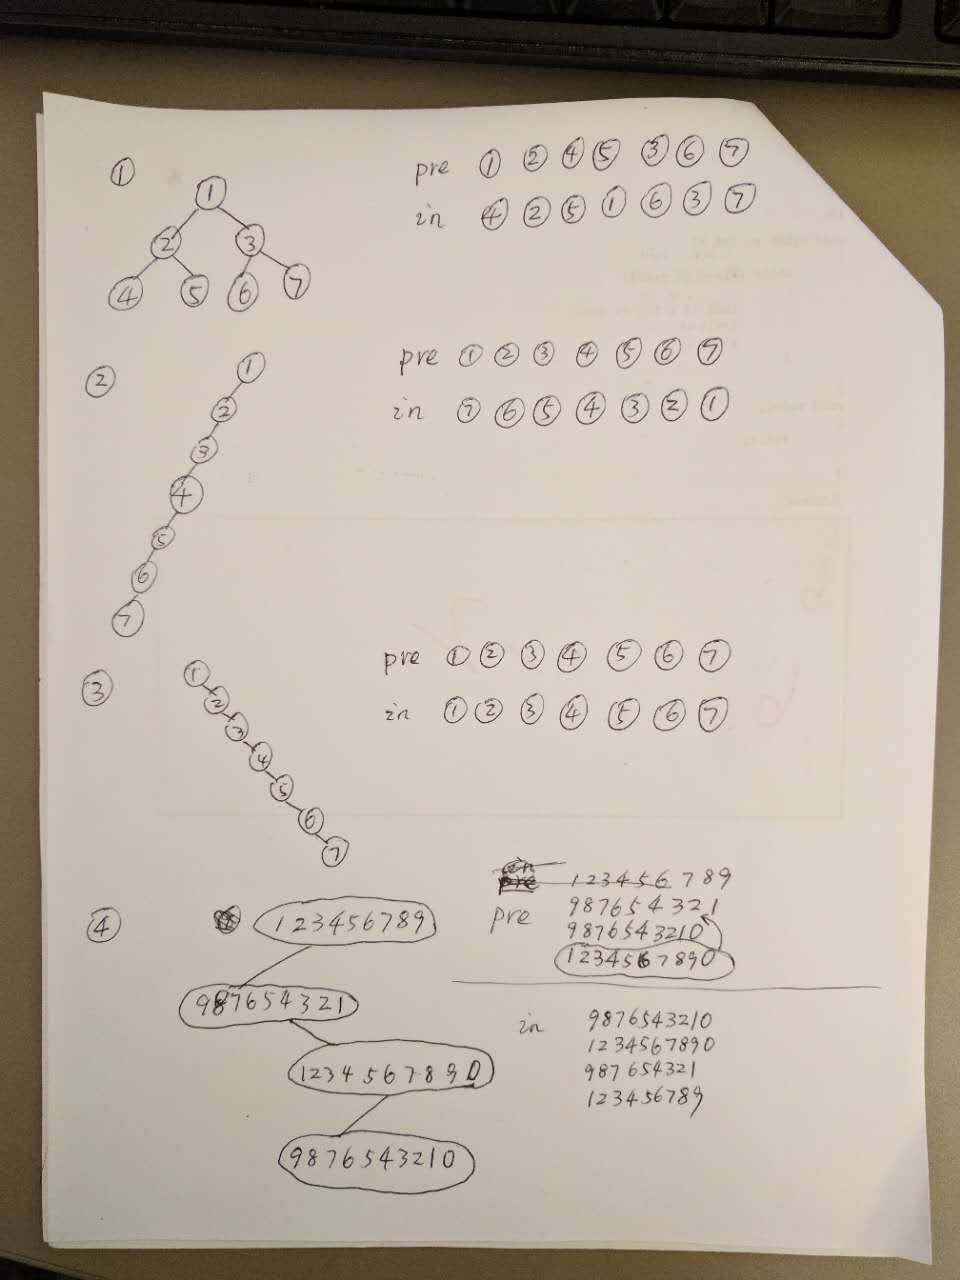 ①
①
② ③
④ ⑤ ⑥ ⑦
pre ① ② ④ ⑤ ③ ⑥ ⑦
in ④ ② ⑤ ① ⑥ ③ ⑦
②
①
②
③
④
⑤
⑥
⑦
pre ① ② ③ ④ ⑤ ⑥ ⑦
in ⑦ ⑥ ⑤ ④ ③ ② ①
③
①
②
③
④
⑤
⑥
⑦
pre ① ② ③ ④ ⑤ ⑥ ⑦
in ① ② ③ ④ ⑤ ⑥ ⑦
④
123456789
987654321
1234567890
9876543210
in
pre 123456789
pre 987654321
9876543210
1234567890
in 9876543210
1234567890
987654321
123456789